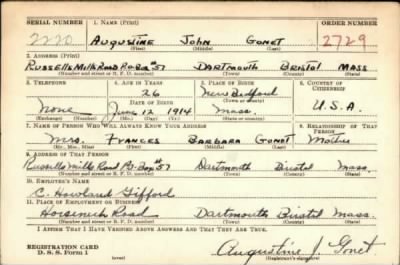 SERIAL NUMBER 1. NAME (Print) ORDER NUMBER
2220 AUGUSTINE JOHN GONET 2729
(First) (Middle) (Last)
2. ADDRESS (Print)
RUSSELLS MILLS ROAD P.O. BOX #57 DARTMOUTH BRISTOL MASS
(Number and street or R. F. D. number) (Town) (County) (State)
3. TELEPHONE 4. AGE IN YEARS 5. PLACE OF BIRTH 6. COUNTRY OF CITIZENSHIP
26 New Bedford
DATE OF BIRTH (Town or county)
None June 12 1914 Mass. U.S.A.
(Exchange) (Number) (Mo.) (Day) (Yr.) (State or country)
7. NAME OF PERSON WHO WILL ALWAYS KNOW YOUR ADDRESS 8. RELATIONSHIP OF THAT PERSON
Mrs. FRANCES BARBARA GONET Mother
(Mr., Mrs., Miss) (First) (Middle) (Last)
9. ADDRESS OF THAT PERSON
Russells Mills Road P.O. Box #57 Dartmouth Bristol Mass.
(Number and street or R. F. D. number) (Town) (County) (State)
10. EMPLOYER'S NAME
C. Howland Gifford
11. PLACE OF EMPLOYMENT OR BUSINESS
Horseneck Road Dartmouth Bristol Mass.
(Number and street or R. F. D. number) (Town) (County) (State)
I AFFIRM THAT I HAVE VERIFIED ABOVE ANSWERS AND THAT THEY ARE TRUE.
REGISTRATION CARD
D. S. S. Form 1 Augustine J. Gonet
(Registrant's signature)